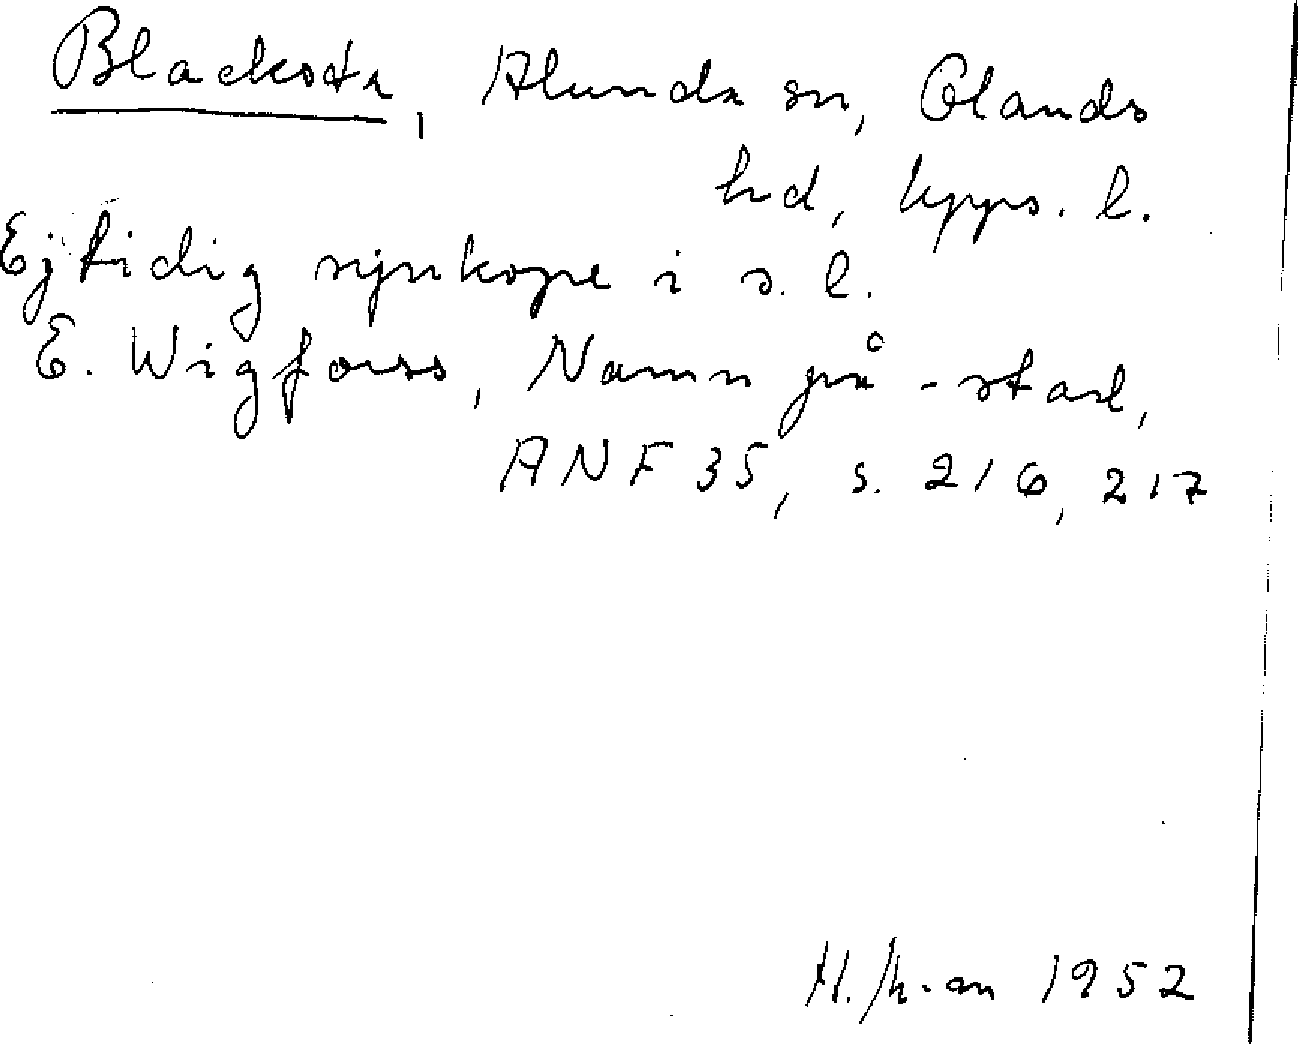 Blacksta, Alunda sn, Olands
hd, Upps. l.
Ej tidig synkope i s. l.
E. Wigforss, Namn på -stad,
ANF 35, s. 216, 217
1952